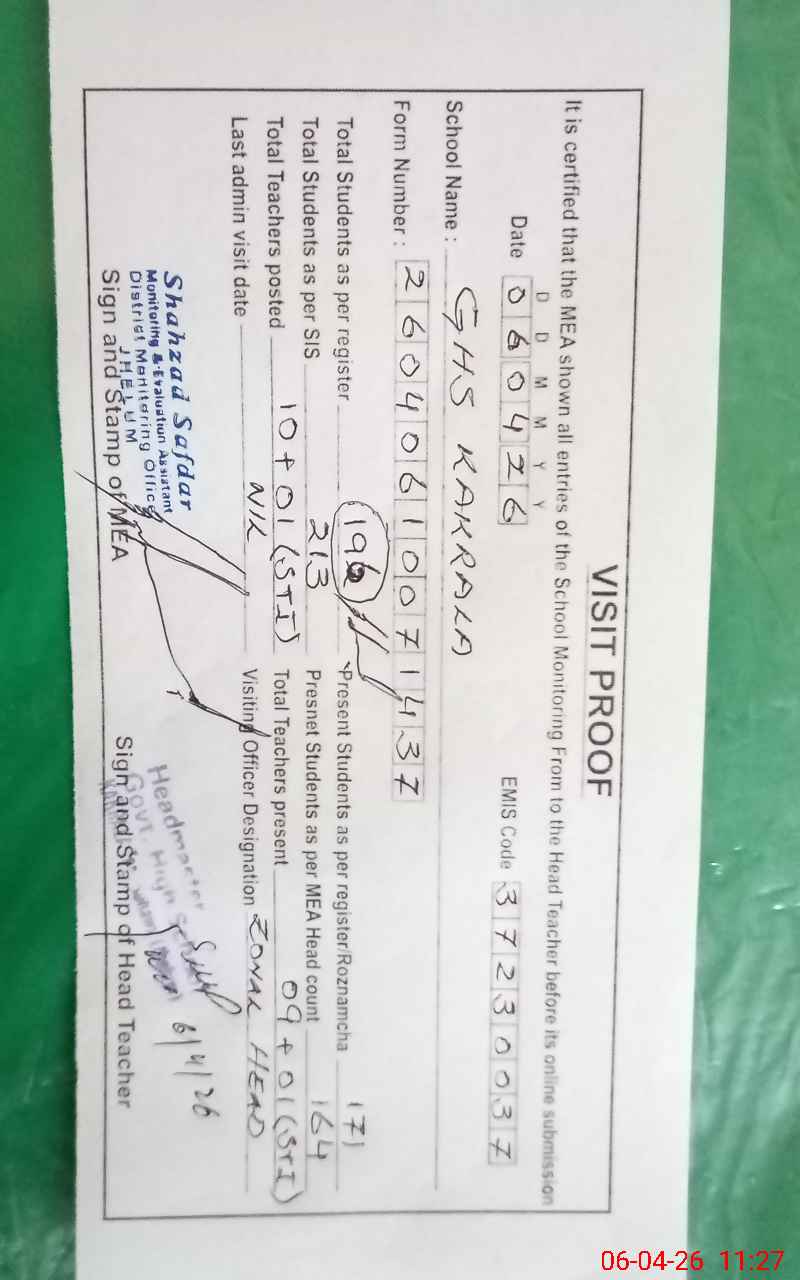 VISIT PROOF
It is certified that the MEA shown all entries of the School Monitoring From to the Head Teacher before its online submission
D D M M Y Y
Date 060426 EMIS Code 37230037
School Name : GHS KAKRALA
Form Number : 2604061007 1437
Total Students as per register 196 Present Students as per register/Roznamcha 171
Total Students as per SIS 213 Presnet Students as per MEA Head count 164
Total Teachers posted 10+01(STI) Total Teachers present 09+01(STI)
Last admin visit date NIL Visiting Officer Designation ZONAL HEAD
Shahzad Safdar
Monitoring & Evaluation Assistant
District Monitoring Office
JHELUM
Sign and Stamp of MEA
Headmaster
Govt. High School
6/4/26
Sign and Stamp of Head Teacher
06-04-26 11:27